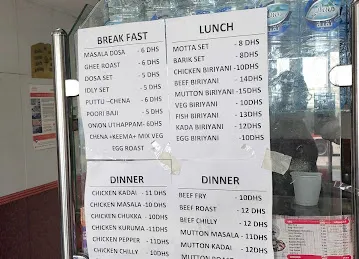 BREAK FAST
MASALA DOSA - 6 DHS
GHEE ROAST - 6 DHS
DOSA SET - 5 DHS
IDLY SET - 5 DHS
PUTTU -CHENA - 6 DHS
POORI BAJI - 5 DHS
ONION UTHAPPAM- 6DHS
CHENA +KEEMA+ MIX VEG
EGG ROAST
LUNCH
MOTTA SET - 8 DHS
BARIK SET - 8DHS
CHICKEN BIRIYANI -10DHS
BEEF BIRIYANI - 14DHS
MUTTON BIRIYANI -15DHS
VEG BIRIYANI - 10DHS
FISH BIRIYANI - 13DHS
KADA BIRIYANI - 12DHS
EGG BIRIYANI -10DHS
DINNER
CHICKEN KADAI - 11 DHS
CHICKEN MASALA -10 DHS
CHICKEN CHUKKA - 10DHS
CHICKEN KURUMA -11DHS
CHICKEN PEPPER - 11DHS
CHICKEN CHILLY - 10DHS
DINNER
BEEF FRY - 10DHS
BEEF ROAST - 12 DHS
BEEF CHILLY - 12 DHS
MUTTON MASALA - 11DHS
MUTTON KADAI - 12DHS
MUTTON